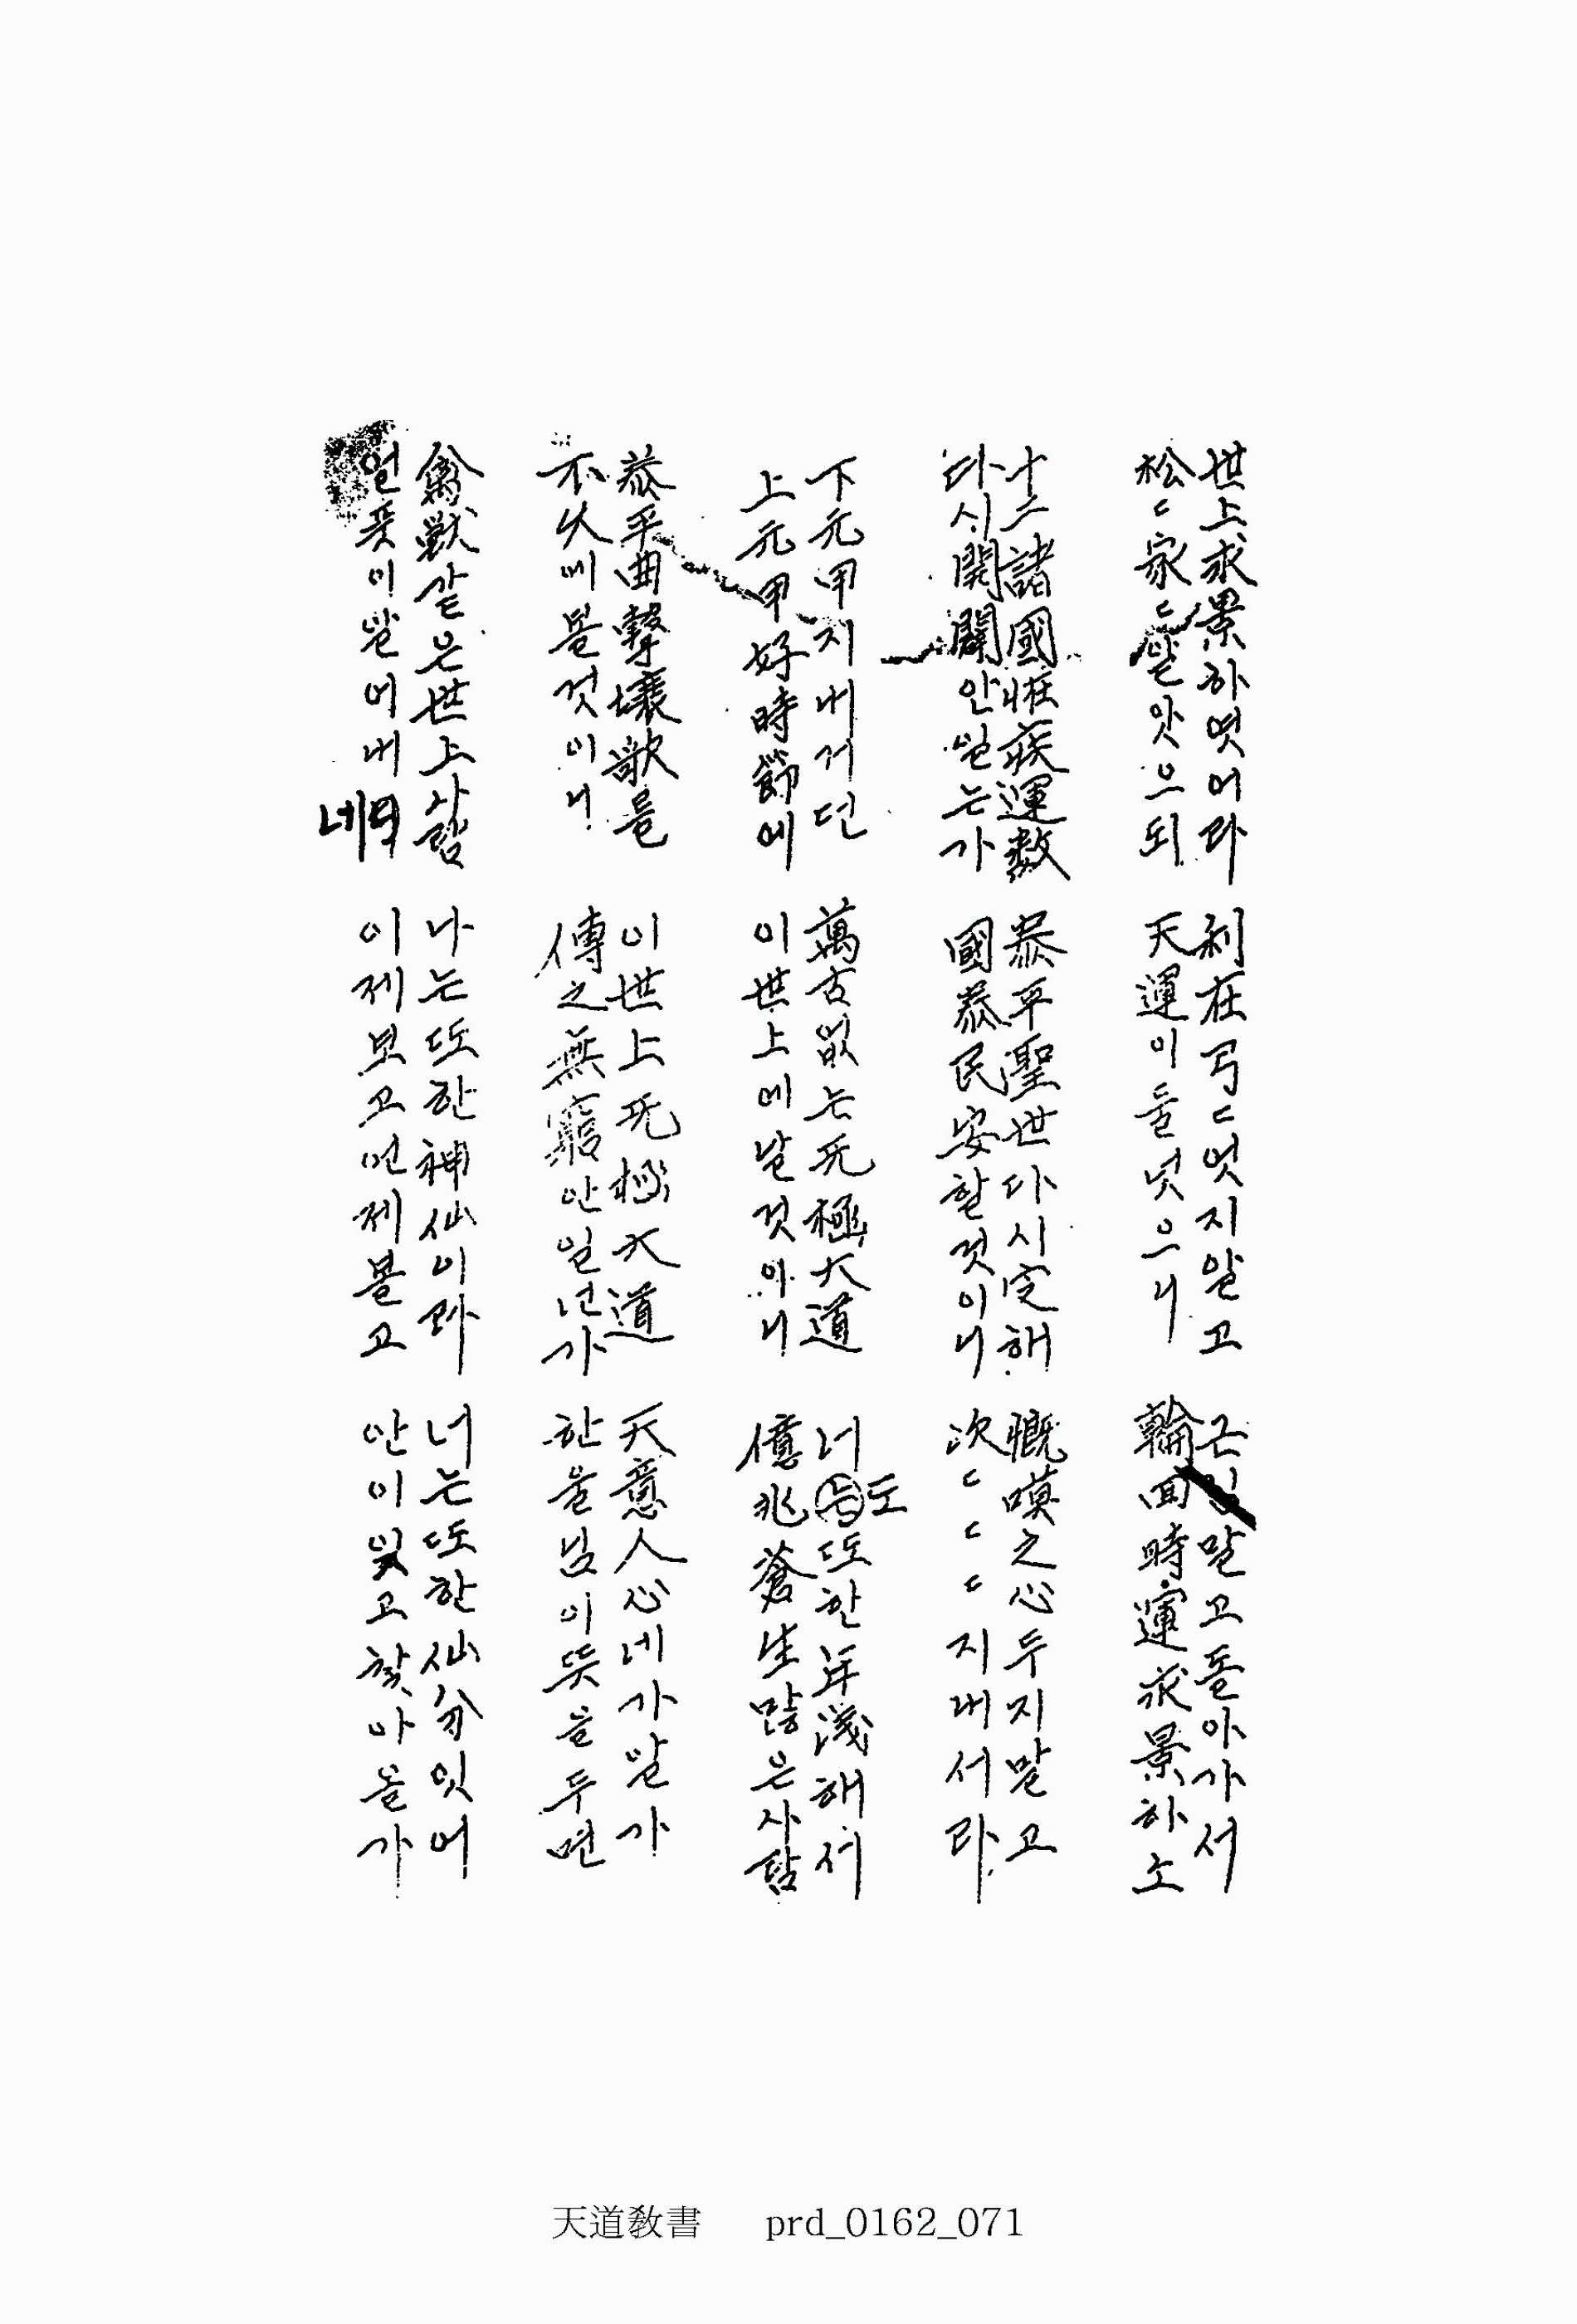 世上求景하엿어라 利在弓ㄷ엇지알고 근심말고돌아가서
松ㄷ家ㄷ알앗으되 天運이둘넛으니 輪回時運求景하소
十二諸國怪疾運数 泰平聖世다시定해 慨嘆之心두지말고
다시開闢안일는가 國泰民安할것이니 次ㄷㄷㄷ지내서라
下元甲지내거던 萬古없는无極大道 너도또한年淺해서
上元甲好時節에 이世上에날것이니 億兆蒼生많은사람
泰平曲擊壤歌를 이世上无極大道 天意人心네가알가
不久에볼것이니 傳之無窮안일넌가 한울님이뜻을두면
禽獸같은世上사람 나는또한神仙이라 너는또한仙分잇어
얼풋이알어내네 이제보고언제볼고 안이잊고찾아올가
天道教書 prd_0162_071